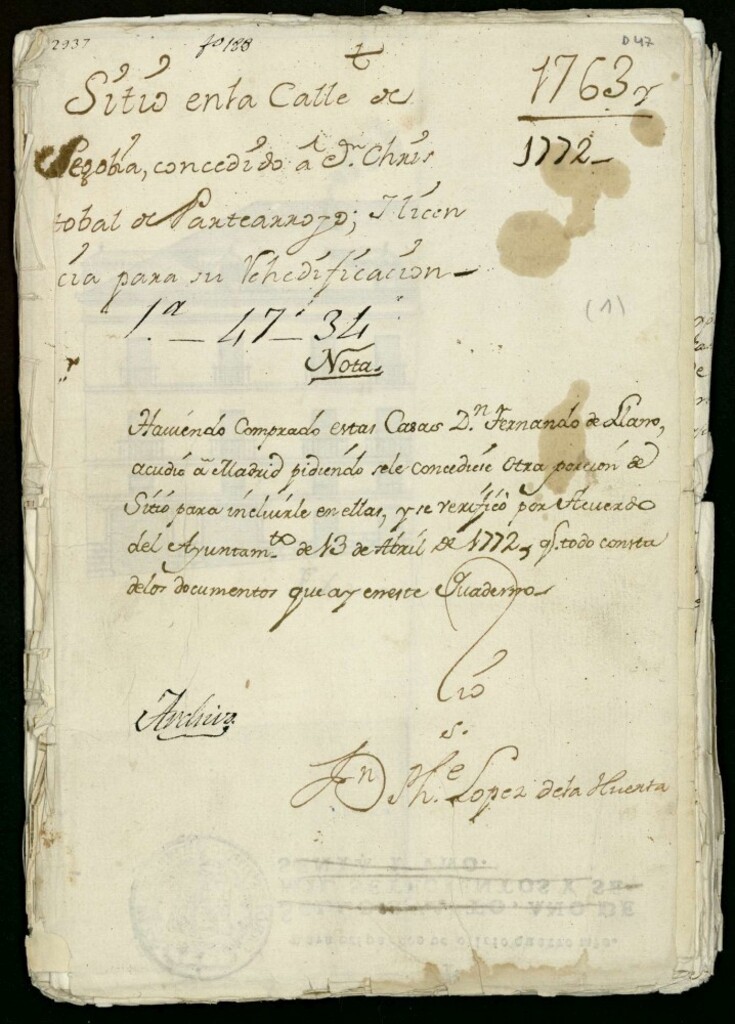 2937
fo 188
D 47
t
1763 y
1772
Sitio en la Calle de
Segobia, concedido â Dn. Chris
tobal de Partearroyo; I licen
cia para su Rehedificacion
1.a - 47 - 34
(1)
Nota.
Haviendo Comprado estas Casas D.n Fernando de Llano,
acudió â Madrid pidiendo sele concediese otra porcion de
Sitio para incluirle en ellas, y se verificò por Acuerdo
del Ayuntam.to de 13 de Abril de 1772, q.e todo consta
delos documentos que ay eneste Quaderno
rio
s.
Archivo
Dn Ph.e Lopez dela Huerta